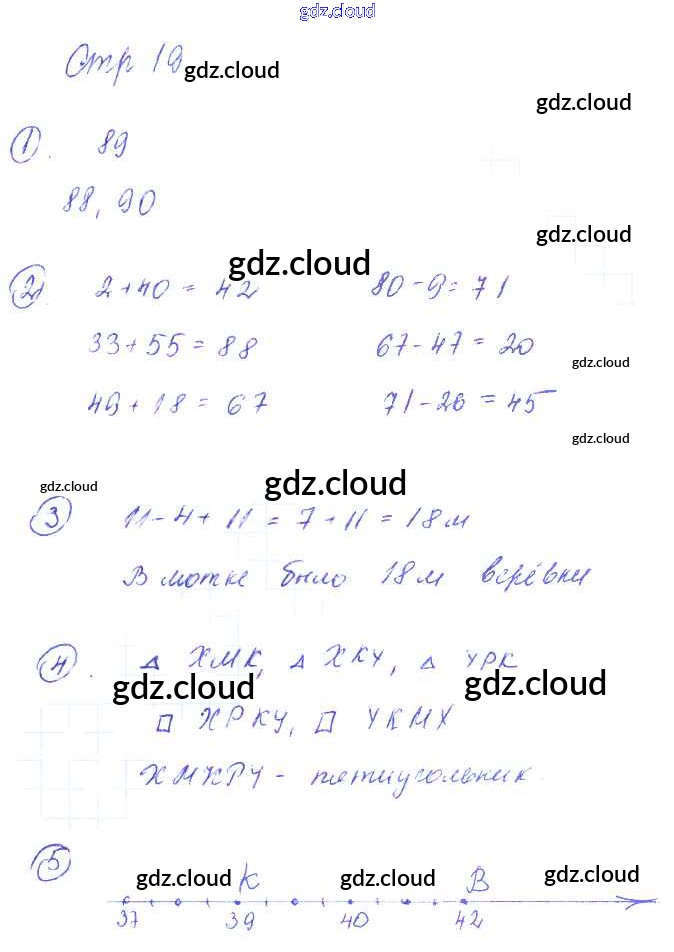 gdz.cloud
Стр 19 gdz.cloud
gdz.cloud
1. 89
88, 90
gdz.cloud
gdz.cloud
2 2+40 = 42 80-9=71
33+55=88 67-47=20
gdz.cloud
49+18=67 71-26=45
gdz.cloud
gdz.cloud
gdz.cloud
3 11-4+11=7+11=18м
В мотке было 18м верёвки
4. △ ХМК, △ ХКУ, △ УРК
gdz.cloud gdz.cloud
▱ ХРКУ, ▱ УКМХ
ХМКРУ - пятиугольник.
5 gdz.cloud К gdz.cloud В gdz.cloud
37 39 40 42